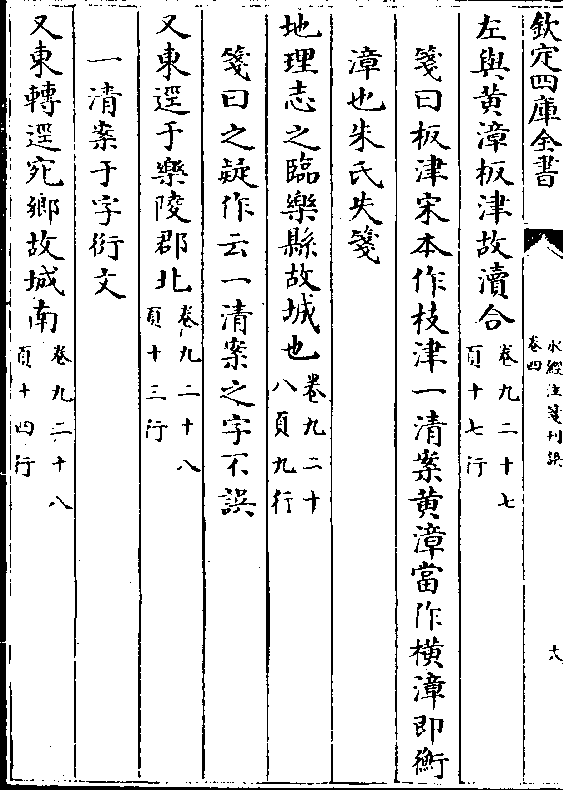 欽定四庫全書
水經注箋刊誤
卷四
十八
左與黃漳板津故瀆合卷九二十七頁十七行
箋曰板津宋本作枝津一清案黃漳當作橫漳即衡
漳也朱氏失箋
地理志之臨樂縣故城也卷九二十八頁九行
箋曰之疑作云一清案之字不誤
又東逕于樂陵郡北卷九二十八頁十三行
一清案于字衍文
又東轉逕宛鄉故城南卷九二十八頁十四行